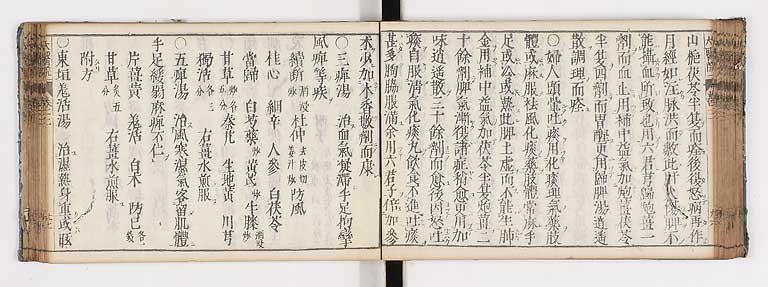 山梔茯苓半夏而痊後因怒病再作
月經如注脉洪而數此肝火傷脾不
能攝血所致也用六君芎歸炮薑一
劑而血止用補中益氣加炮薑茯苓
半夏四劑而胃醒更用歸脾湯逍遙
散調理而痊
〇婦人頭暈吐痰用化痰理氣藥肢
體或麻服祛風化痰藥肢體常麻手
足或冷或熱此脾土虛而不能生肺
金用補中益氣加茯苓半夏炮薑二
十餘劑脾氣漸復諸症稍愈更用加
味逍遙散三十餘劑而愈後因怒吐
痰自服清氣化痰丸飲食不進吐痰
甚多胸脇脹滿余用六君子倍加參
朮少加木香數劑而康
風痺等疾
〇三痺湯　治血氣凝滯手足拘攣
續斷　杜仲　防風
桂心　細辛　人參　白茯苓
當歸　白芍藥　黃芪　牛膝
甘草 各五分　秦艽　生地黃　川芎
獨活 各三分　右薑水煎服
〇五痺湯　治風寒濕氣客留肌體
手足緩弱麻痺不仁
片薑黃　羌活　白朮　防己 各一錢
甘草 五分　右薑水煎服
附方
〇東垣羌活湯　治濕熱身重或眩